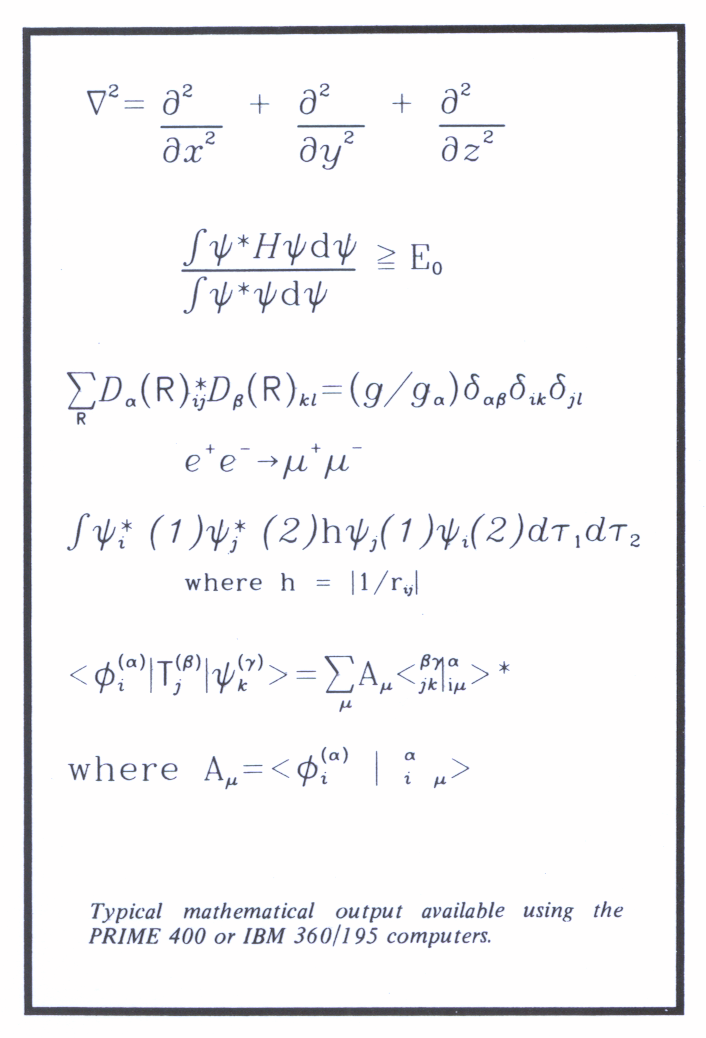 ∇²= ∂²/∂x² + ∂²/∂y² + ∂²/∂z²
∫ψ*Hψdψ / ∫ψ*ψdψ ≧ E₀
∑_R D_α(R)*_ij D_β(R)_kl=(g/g_α)δ_αβ δ_ik δ_jl
e⁺e⁻→μ⁺μ⁻
∫ψ_i* (1)ψ_j* (2)hψ_j(1)ψ_i(2)dτ₁dτ₂
where h = |1/r_ij|
<ϕ_i^(α)|T_j^(β)|ψ_k^(γ)>=∑_μ A_μ<^βγ_jk|^α_iμ>*
where A_μ=<ϕ_i^(α) | ^α_i _μ>
Typical mathematical output available using the
PRIME 400 or IBM 360/195 computers.